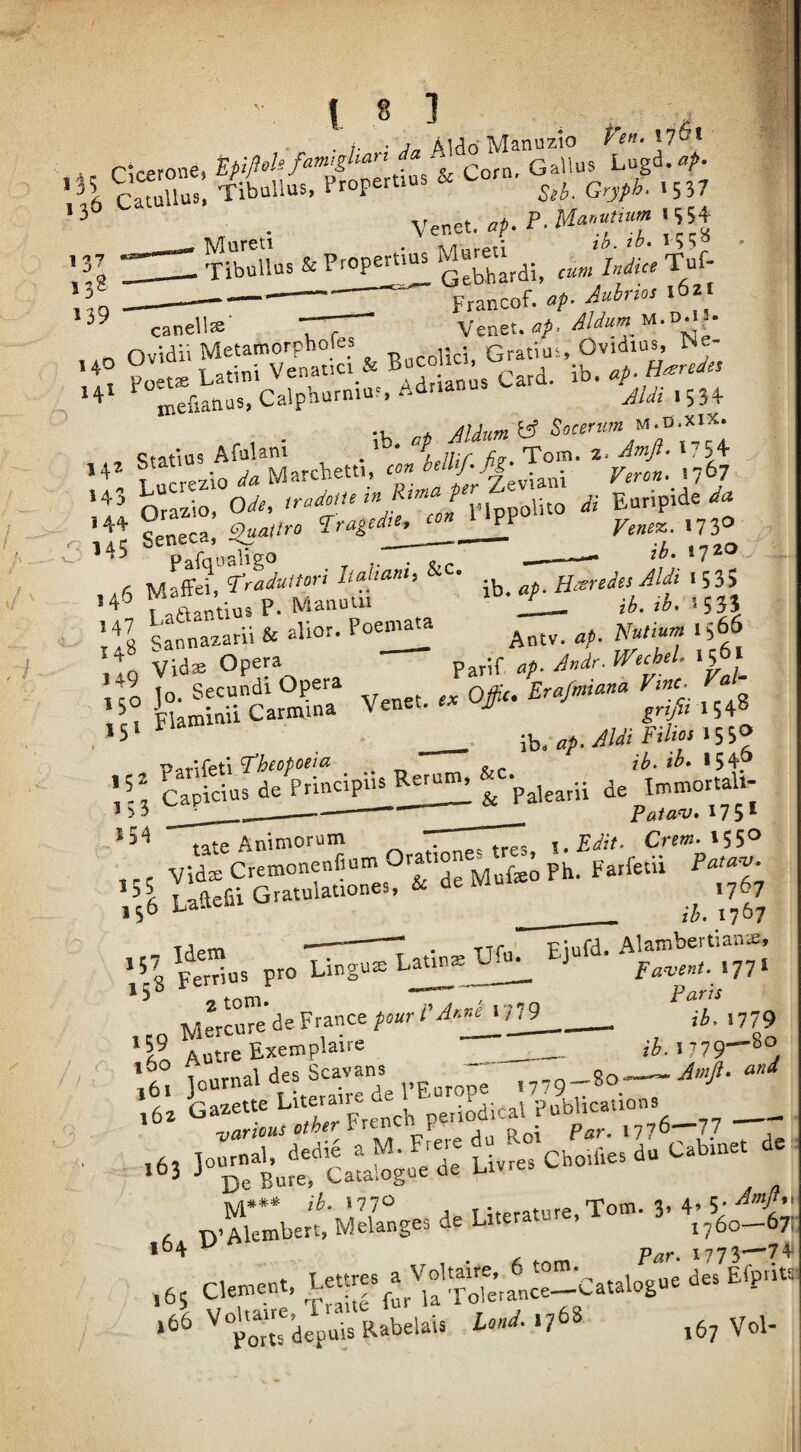 [ 8 ]
135 Cicerone, Epistole famigliari da Aldo Manuzio Ven. 1761
136 Catullus, Tibullus, Propertius & Corn. Gallus Lugd. ap.
Seb. Gryph. 1537
137 ——— Mureti Venet. ap. P. Manutium 1554
138 ——— Tibullus & Propertius Mureti ib. ib. 1558
139 ——— Gebhardi, cum Indice Tuſ-
canellæ Francof. ap. Aubrios 1621
140 Ovidii Metamorphoſes Venet. ap. Aldum M.D.II.
141 Poetæ Latini Venatici & Bucolici, Gratius, Ovidius, Ne-
meſianus, Calphurnius, Adrianus Card. ib. ap. Hæredes
Aldi 1534
142 Statius Aſulani ib. ap Aldum & Socerum M.D.XIX.
143 Lucrezio da Marchetti, con belliſ. fig. Tom. 2. Amſt. 1754
144 Orazio, Ode, tradotte in Rima per Zeviani Veron. 1767
145 Seneca, Quattro Tragedie, con l'Ippolito di Euripide da
Paſqualigo ——— Venez. 1730
146 Maffei, Traduttori Italiani, &c. ——— ib. 1720
147 Lactantius P. Manutii ib. ap. Hæredes Aldi 1535
148 Sannazarii & alior. Poemata ——— ib. ib. 1533
149 Vidæ Opera ——— Antv. ap. Nutium 1566
150 Jo. Secundi Opera Pariſ ap. Andr. Wechel. 1561
151 Flaminii Carmina Venet. ex Offic. Eraſmiana Vinc. Val-
griſii 1548
152 Pariſeti Theopoeia ——— ib. ap. Aldi Filios 1550
153 Capicius de Principiis Rerum, &c. ib. ib. 1546
154 ——— & Palearii de Immortali-
tate Animorum Patav. 1751
155 Vidæ Cremonenſium Orationes tres, 1. Edit. Crem. 1550
156 Laſteſii Gratulationes, & de Muſæo Ph. Farſetii Patav.
1767
157 Idem ——— ib. 1767
158 Ferrius pro Linguæ Latinæ Uſu. Ejuſd. Alambertianæ,
2 tom. ——— Favent. 1771
159 Mercure de France pour l'Anné 1779 Paris
160 Autre Exemplaire ——— ib. 1779
161 Journal des Scavans ——— ib. 1779—80
162 Gazette Literaire de l'Europe 1779—80 —— Amſt. and
various other French periodical Publications
163 Journal, dedié a M. Frere du Roi Par. 1776—77 ——
De Bure, Catalogue de Livres Choiſies du Cabinet de
M*** ib. 1770
164 D'Alembert, Melanges de Literature, Tom. 3, 4, 5. Amſt.
1760—67
165 Clement, Lettres a Voltaire, 6 tom. Par. 1773—74
166 Voltaire, Traité ſur la Tolerance—Catalogue des Eſprits
Forts depuis Rabelais Lond. 1768
167 Vol-